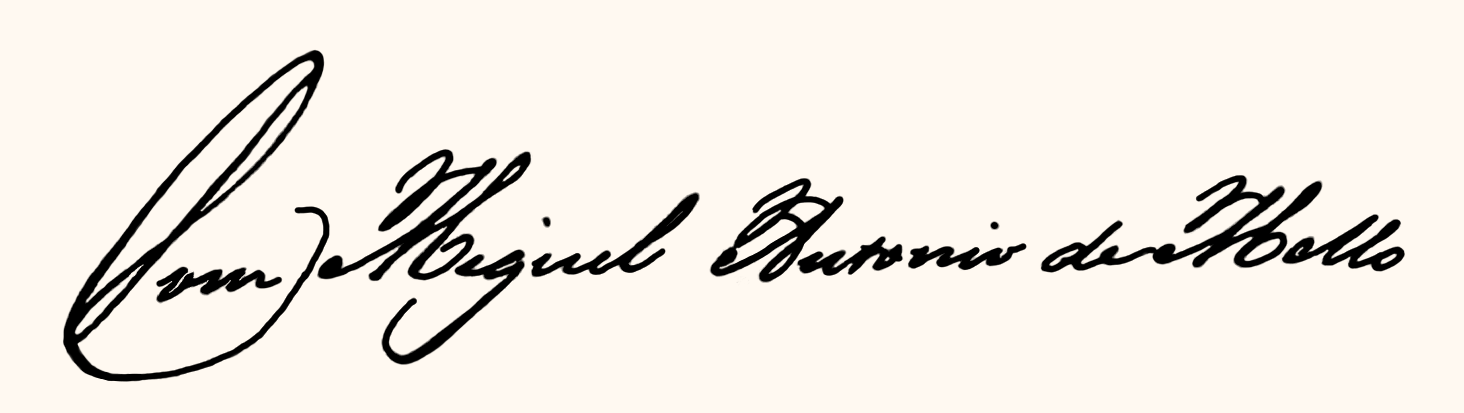 Dom Miguel Antonio de Mello